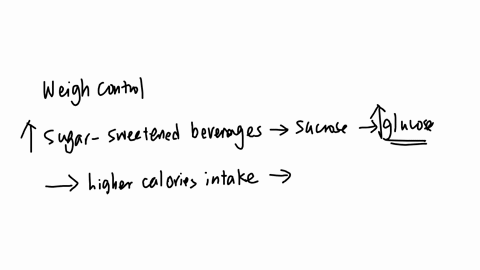 Weigh control
↑ Sugar-sweetened beverages → sucrose → ↑glucose
→ higher calories intake →